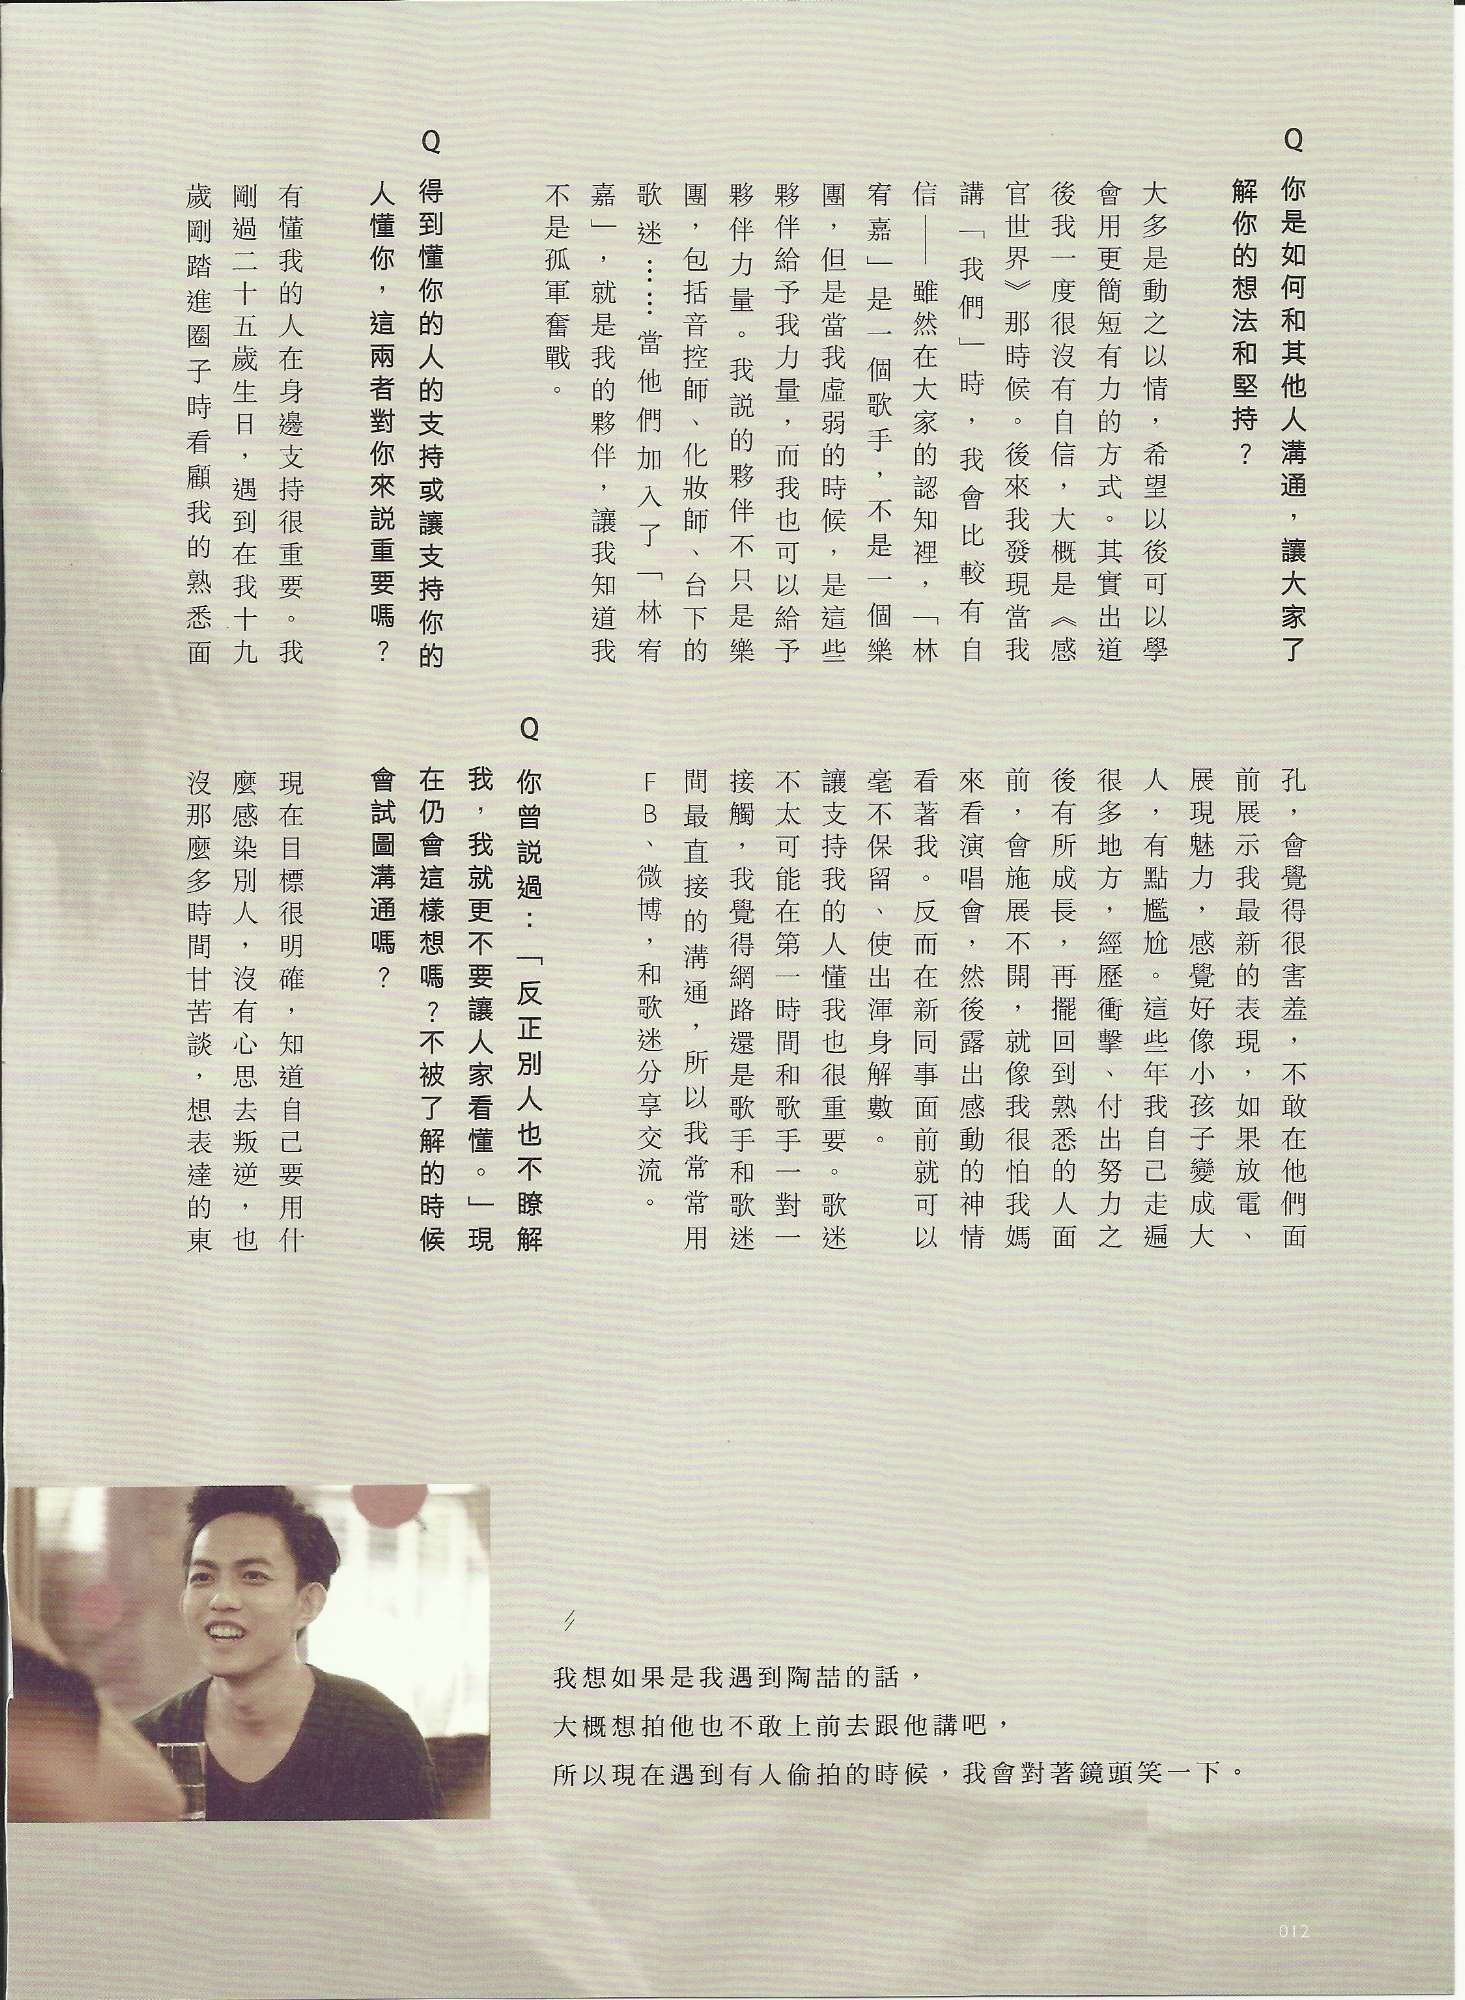 Q 你是如何和其他人溝通，讓大家了
解你的想法和堅持？
大多是動之以情，希望以後可以學
會用更簡短有力的方式。其實出道
後我一度很沒有自信，大概是《感
官世界》那時候。後來我發現當我
講「我們」時，我會比較有自
信——雖然在大家的認知裡，「林
宥嘉」是一個歌手，不是一個樂
團，但是當我虛弱的時候，是這些
夥伴給予我力量，而我也可以給予
夥伴力量。我說的夥伴不只是樂
團，包括音控師、化妝師、台下的
歌迷……當他們加入了「林宥
嘉」，就是我的夥伴，讓我知道我
不是孤軍奮戰。
Q 得到懂你的人的支持或讓支持你的
人懂你，這兩者對你來說重要嗎？
有懂我的人在身邊支持很重要。我
剛過二十五歲生日，遇到在我十九
歲剛踏進圈子時看顧我的熟悉面
孔，會覺得很害羞，不敢在他們面
前展示我最新的表現，如果放電、
展現魅力，感覺好像小孩子變成大
人，有點尷尬。這些年我自己走遍
很多地方，經歷衝擊、付出努力之
後有所成長，再擺回到熟悉的人面
前，會施展不開，就像我很怕我媽
來看演唱會，然後露出感動的神情
看著我。反而在新同事面前就可以
毫不保留、使出渾身解數。
讓支持我的人懂我也很重要。歌迷
不太可能在第一時間和歌手一對一
接觸，我覺得網路還是歌手和歌迷
間最直接的溝通，所以我常常用
FB、微博，和歌迷分享交流。
Q 你曾說過：「反正別人也不瞭解
我，我就更不要讓人家看懂。」現
在仍會這樣想嗎？不被了解的時候
會試圖溝通嗎？
現在目標很明確，知道自己要用什
麼感染別人，沒有心思去叛逆，也
沒那麼多時間甘苦談，想表達的東
我想如果是我遇到陶喆的話，
大概想拍他也不敢上前去跟他講吧，
所以現在遇到有人偷拍的時候，我會對著鏡頭笑一下。
012